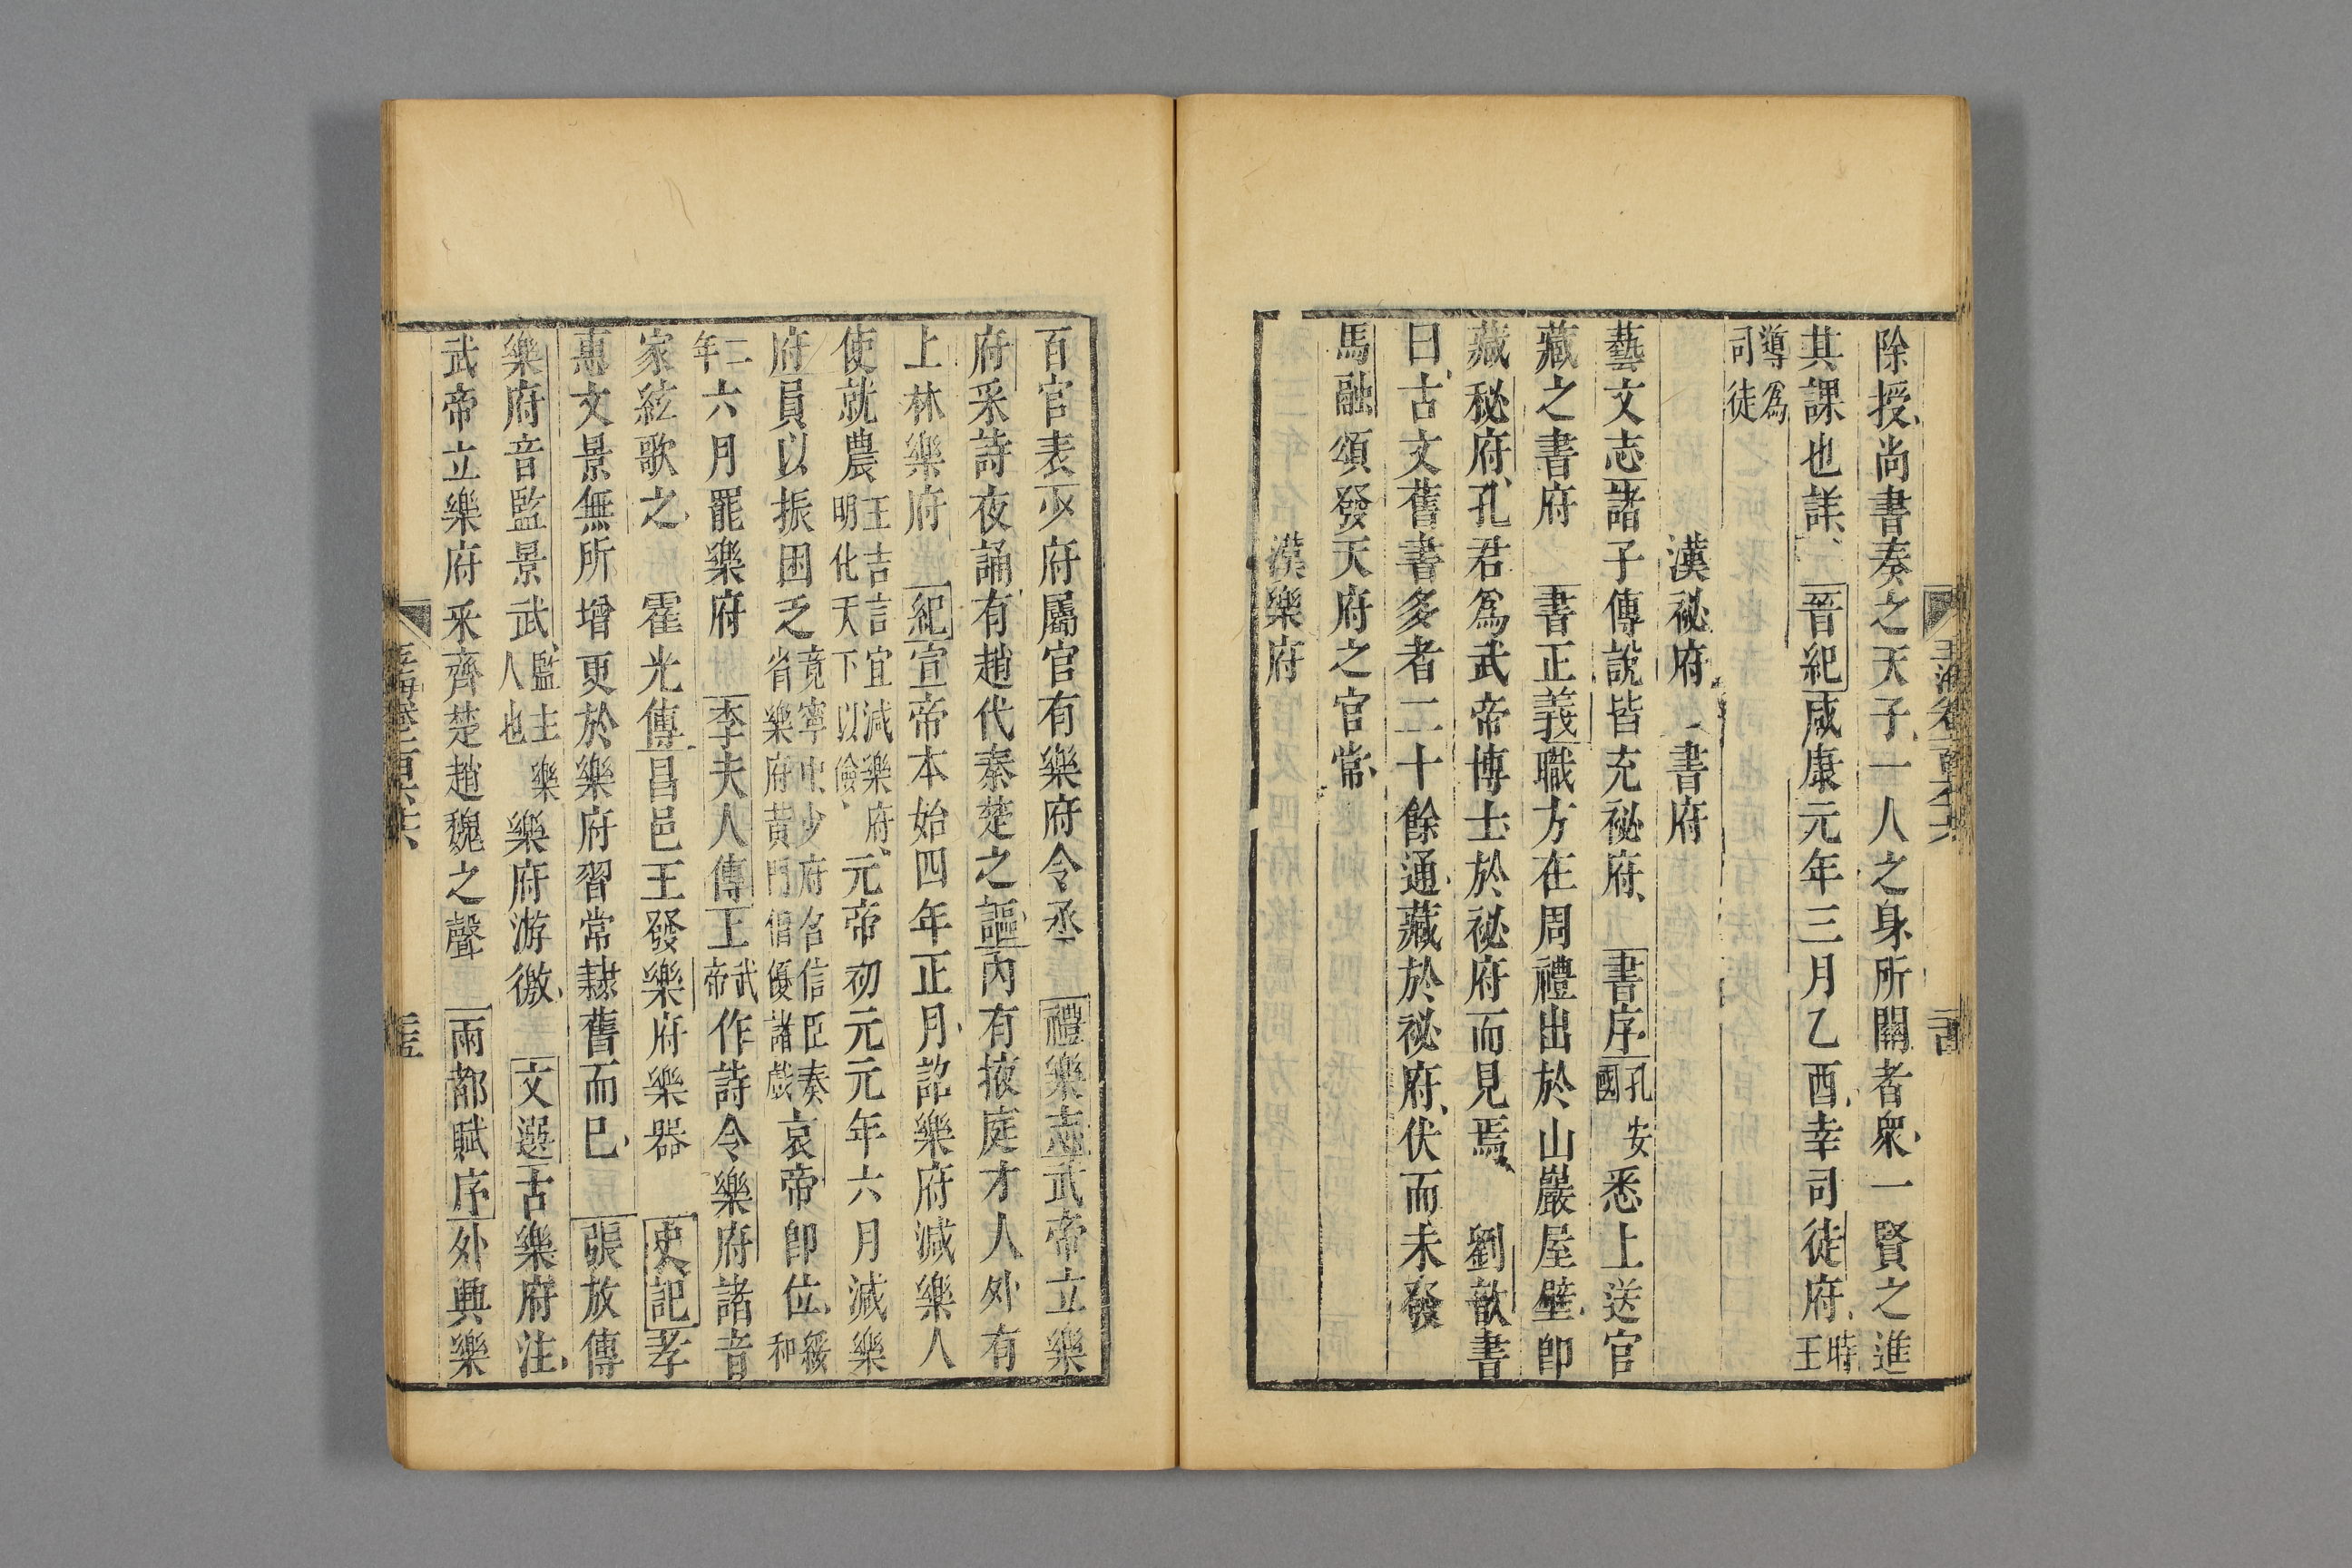 除授尚書奏之天子一人之身所關者衆一賢之進
其課也詳晉紀咸康元年三月乙酉幸司徒府時王
導爲司徒
漢祕府 書府
藝文志諸子傳說皆充祕府書序孔安國悉上送官
藏之書府書正義職方在周禮出於山巖屋壁卽
藏秘府孔君爲武帝博士於祕府而見焉劉歆書
曰古文舊書多者二十餘通藏於祕府伏而未發
馬融頌發天府之官常
漢樂府
百官表少府屬官有樂府令丞禮樂志武帝立樂
府采詩夜誦有趙代秦楚之謳內有掖庭才人外有
上林樂府紀宣帝本始四年正月詔樂府減樂人
使就農王吉言宜減樂府明化天下以儉元帝初元元年六月減樂
府員以振困乏竟寧中少府召信臣奏省樂府黃門倡優諸戲哀帝卽位綏和
二年六月罷樂府李夫人傳上武帝作詩令樂府諸音
家絃歌之霍光傳昌邑王發樂府樂器史記孝
惠文景無所增更於樂府習常隸舊而已張放傳
樂府音監景武監主樂人也樂府游徼文選古樂府注
武帝立樂府采齊楚趙魏之聲兩都賦序外興樂